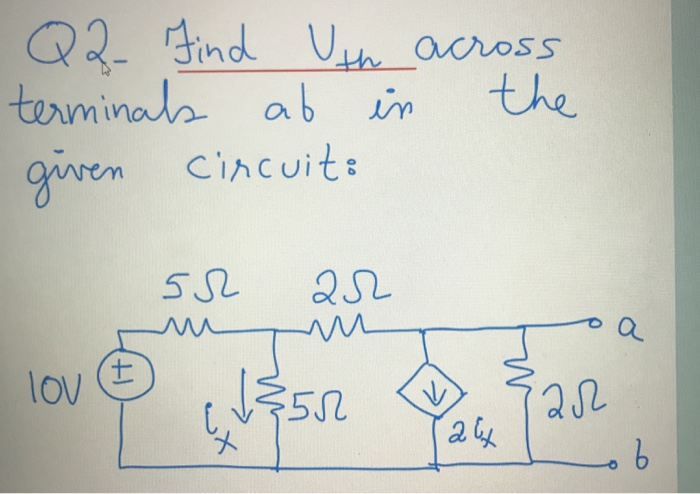 Q2- Find Vth across
terminals ab in the
given circuit:
5Ω 2Ω
a
10V
ix
5Ω
2ix
2Ω
b